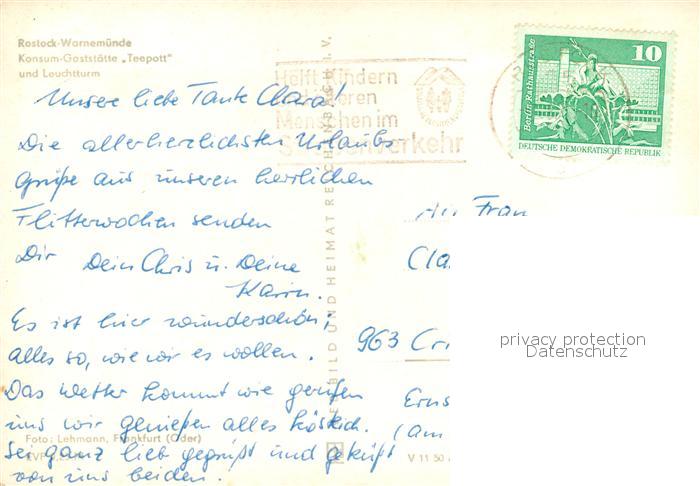 Rostock-Warnemünde
Konsum-Gaststätte „Teepott"
und Leuchtturm
Helft Kindern
und älteren
Menschen im
Straßenverkehr
10
Berlin, Rathausstraße
DEUTSCHE DEMOKRATISCHE REPUBLIK
Unsere liebe Tante Clara!
Die allerherzlichsten Urlaubs-
grüße aus unseren herrlichen
Flitterwochen senden
Dir Dein Chris u. Deine
Karin.
Es ist hier wunderschön;
alles so, wie wir es wollen.
Das Wetter kommt wie gerufen
uns wir genießen alles köstlich.
Sei ganz lieb gegrüßt und geküßt
von uns beiden.
An Frau
Cla
963 Cri
Erns
(am
BILD UND HEIMAT REICHENBACH I. V.
Foto: Lehmann, Frankfurt (Oder)
V 11 50
privacy protection
Datenschutz